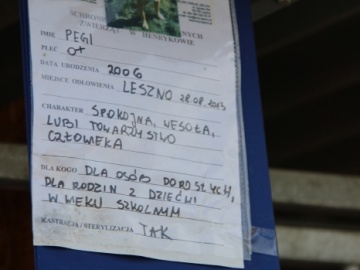 SCHRONISKO
ZWIERZĄT W HENRYKOWIE
IMIĘ PEGI
PŁEĆ ♀
DATA URODZENIA 2006
MIEJSCE ODŁOWIENIA LESZNO 28.08.2013
CHARAKTER SPOKOJNA, WESOŁA,
LUBI TOWARZYSTWO
CZŁOWIEKA
DLA KOGO DLA OSÓB DOROSŁYCH,
DLA RODZIN Z DZIEĆMI
W WIEKU SZKOLNYM
KASTRACJA/STERYLIZACJA TAK